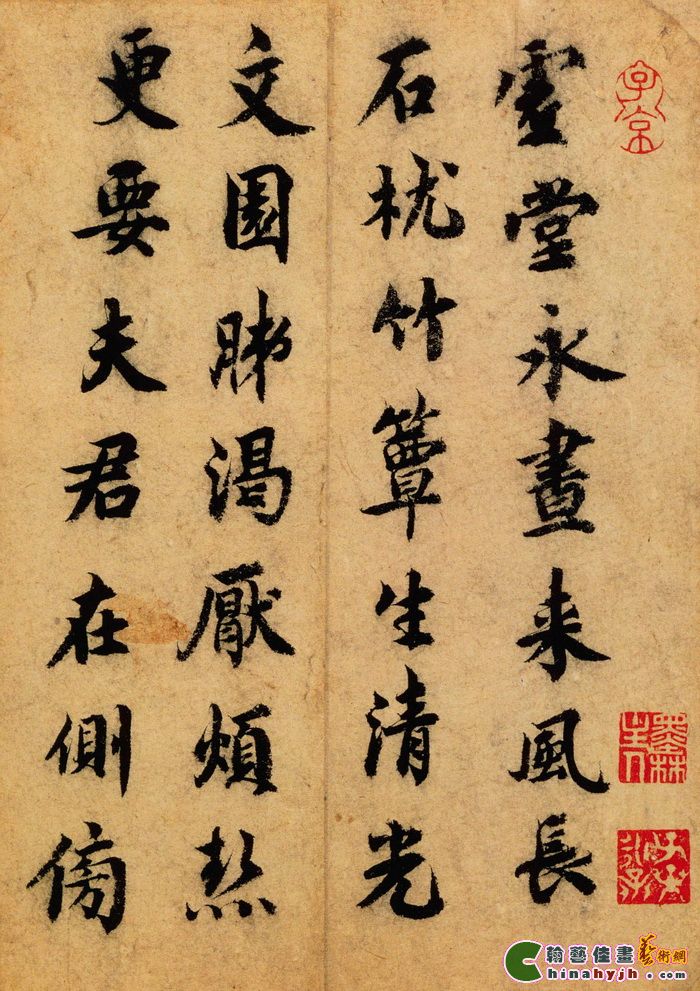 子京
虚堂永晝来風長
石枕竹簟生清光
文園肺渴厭煩熱
更要夫君在側傍
墨林山人
翰藝佳畫藝術網
Chinahyjh.com